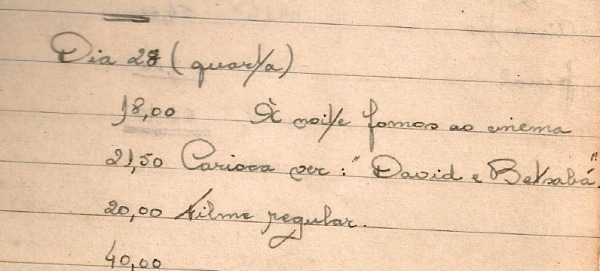 Dia 28 (quarta)
18,00 À noite fomos ao cinema
21,50 Carioca ver: "David e Betsabá".
20,00 Filme regular.
40,00